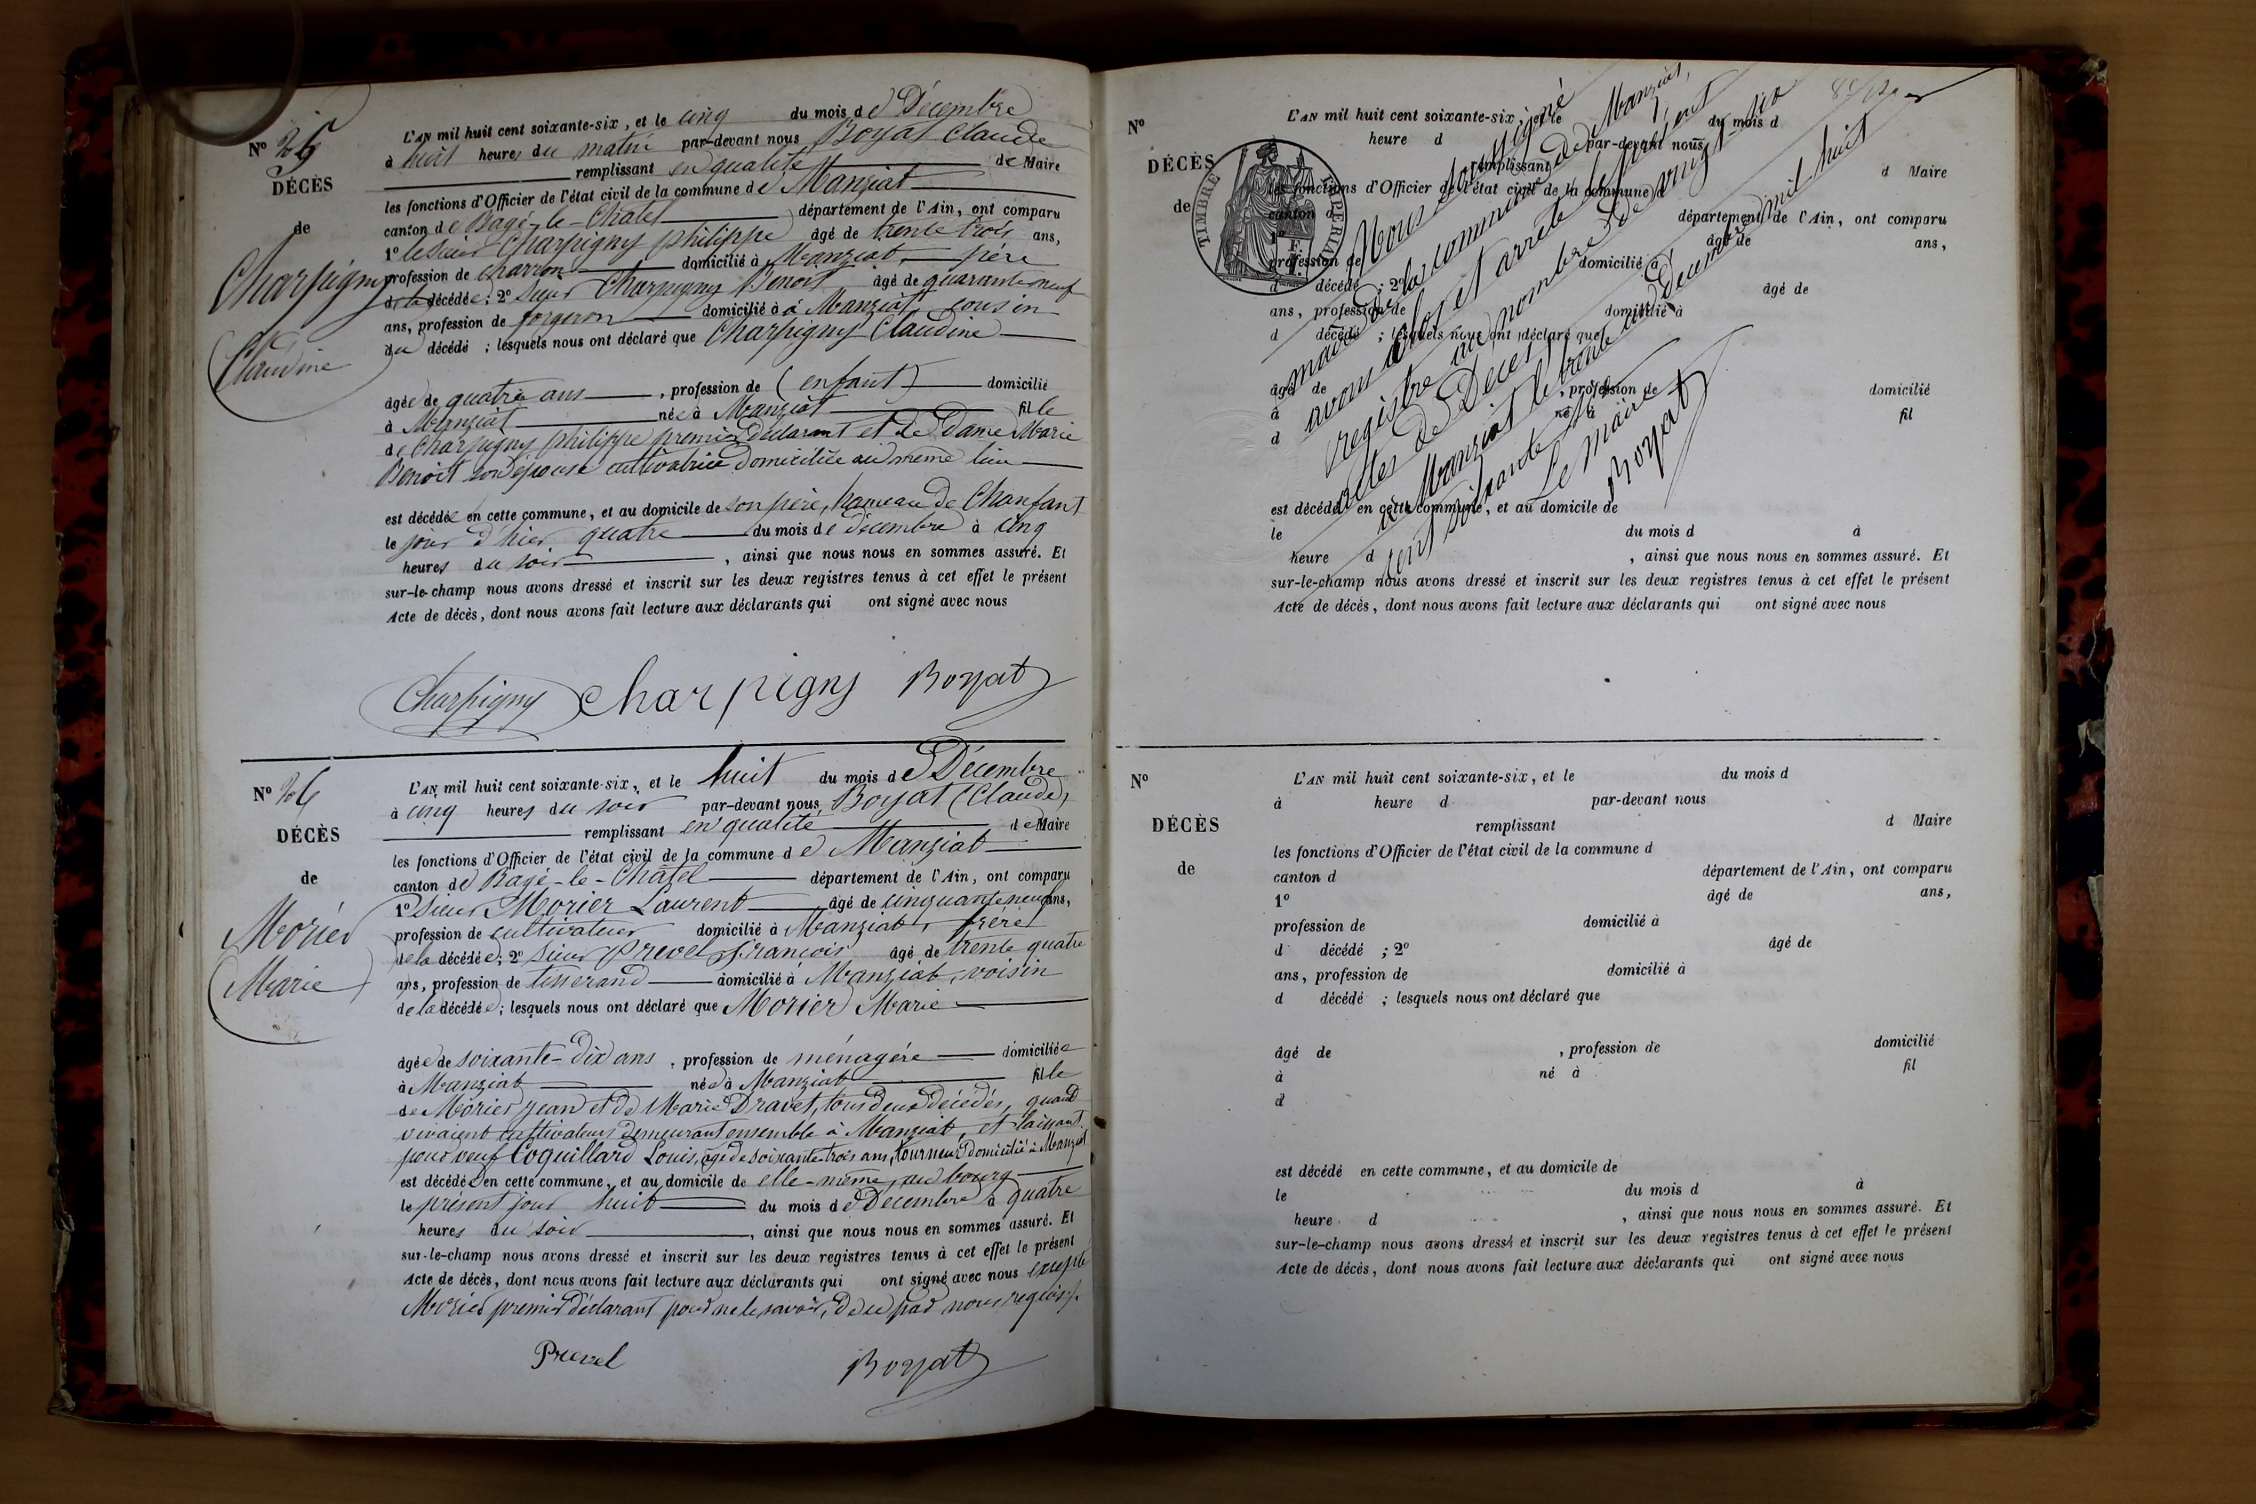 N° 25
DÉCÈS
de
Charpigny
Claudine
L'AN mil huit cent soixante-six, et le cinq du mois de Décembre
à huit heures du matin par-devant nous Boyat Claude
remplissant en qualité de Maire
les fonctions d'Officier de l'état civil de la commune de Manziat
canton de Bagé-le-Châtel département de l'Ain, ont comparu
1° le sieur Charpigny philippe âgé de trente trois ans,
profession de charron domicilié à Manziat, père
de la décédée; 2° sieur Charpigny Benoit âgé de quarante neuf
ans, profession de forgeron domicilié à à Manziat cousin
du décédé ; lesquels nous ont déclaré que Charpigny Claudine
âgée de quatre ans, profession de (enfant) domicilié
à Manziat née à Manziat fille
de Charpigny philippe premier déclarant et de Dame Marie
Benoit son épouse cultivatrice domiciliée au même lieu
est décédée en cette commune, et au domicile de son père, hameau de Chanfant
le jour d'hier quatre du mois de décembre à cinq
heures du soir, ainsi que nous nous en sommes assuré. Et
sur-le-champ nous avons dressé et inscrit sur les deux registres tenus à cet effet le présent
Acte de décès, dont nous avons fait lecture aux déclarants qui ont signé avec nous
Charpigny Charpigny Boyat
N° 26
DÉCÈS
de
Morier
Marie
L'AN mil huit cent soixante-six, et le huit du mois de Décembre
à cinq heures du soir par-devant nous Boyat (Claude)
remplissant en qualité de Maire
les fonctions d'Officier de l'état civil de la commune de Manziat
canton de Bagé-le-Châtel département de l'Ain, ont comparu
1° sieur Morier Laurent âgé de cinquante neuf ans,
profession de cultivateur domicilié à Manziat, frère
de la décédée; 2° sieur prevel françois âgé de trente quatre
ans, profession de tisserand domicilié à Manziat, voisin
de la décédée; lesquels nous ont déclaré que Morier Marie
âgée de soixante-dix ans, profession de ménagère domiciliée
à Manziat née à Manziat fille
de Morier jean et de Marie Dravet, tous deux décédés, quand
vivaient cultivateurs demeurant ensemble à Manziat, et laissant
pour veuf Coquillard Louis, âgé de soixante-trois ans, tourneur domicilié à Manziat
est décédée en cette commune, et au domicile de elle-même, au bourg
le présent jour huit du mois de Décembre à quatre
heures du soir, ainsi que nous nous en sommes assuré. Et
sur-le-champ nous avons dressé et inscrit sur les deux registres tenus à cet effet le présent
Acte de décès, dont nous avons fait lecture aux déclarants qui ont signé avec nous excepté
Morier premier déclarant pour ne le savoir, de ce par nous requis.
Prevel Boyat
N°
DÉCÈS
de
TIMBRE IMPÉRIAL
L'AN mil huit cent soixante-six, et le du mois d
à heure d par-devant nous
remplissant d Maire
les fonctions d'Officier de l'état civil de la commune d
canton d département de l'Ain, ont comparu
1° âgé de ans,
profession de domicilié à
d décédé ; 2° âgé de
ans, profession de domicilié à
d décédé ; lesquels nous ont déclaré que
âgé de , profession de domicilié
à né à fil
d
est décédé en cette commune, et au domicile de
le du mois d à
heure d , ainsi que nous nous en sommes assuré. Et
sur-le-champ nous avons dressé et inscrit sur les deux registres tenus à cet effet le présent
Acte de décès, dont nous avons fait lecture aux déclarants qui ont signé avec nous
Nous soussigné
maire de la commune de Manziat,
avons clos et arrêté le présent
registre au nombre de vingt-six
actes de Décès
à Manziat le trente un décembre mil huit
cent soixante six
Le Maire
Boyat
N°
DÉCÈS
de
L'AN mil huit cent soixante-six, et le du mois d
à heure d par-devant nous
remplissant d Maire
les fonctions d'Officier de l'état civil de la commune d
canton d département de l'Ain, ont comparu
1° âgé de ans,
profession de domicilié à
d décédé ; 2° âgé de
ans, profession de domicilié à
d décédé ; lesquels nous ont déclaré que
âgé de , profession de domicilié
à né à fil
d
est décédé en cette commune, et au domicile de
le du mois d à
heure d , ainsi que nous nous en sommes assuré. Et
sur-le-champ nous avons dressé et inscrit sur les deux registres tenus à cet effet le présent
Acte de décès, dont nous avons fait lecture aux déclarants qui ont signé avec nous